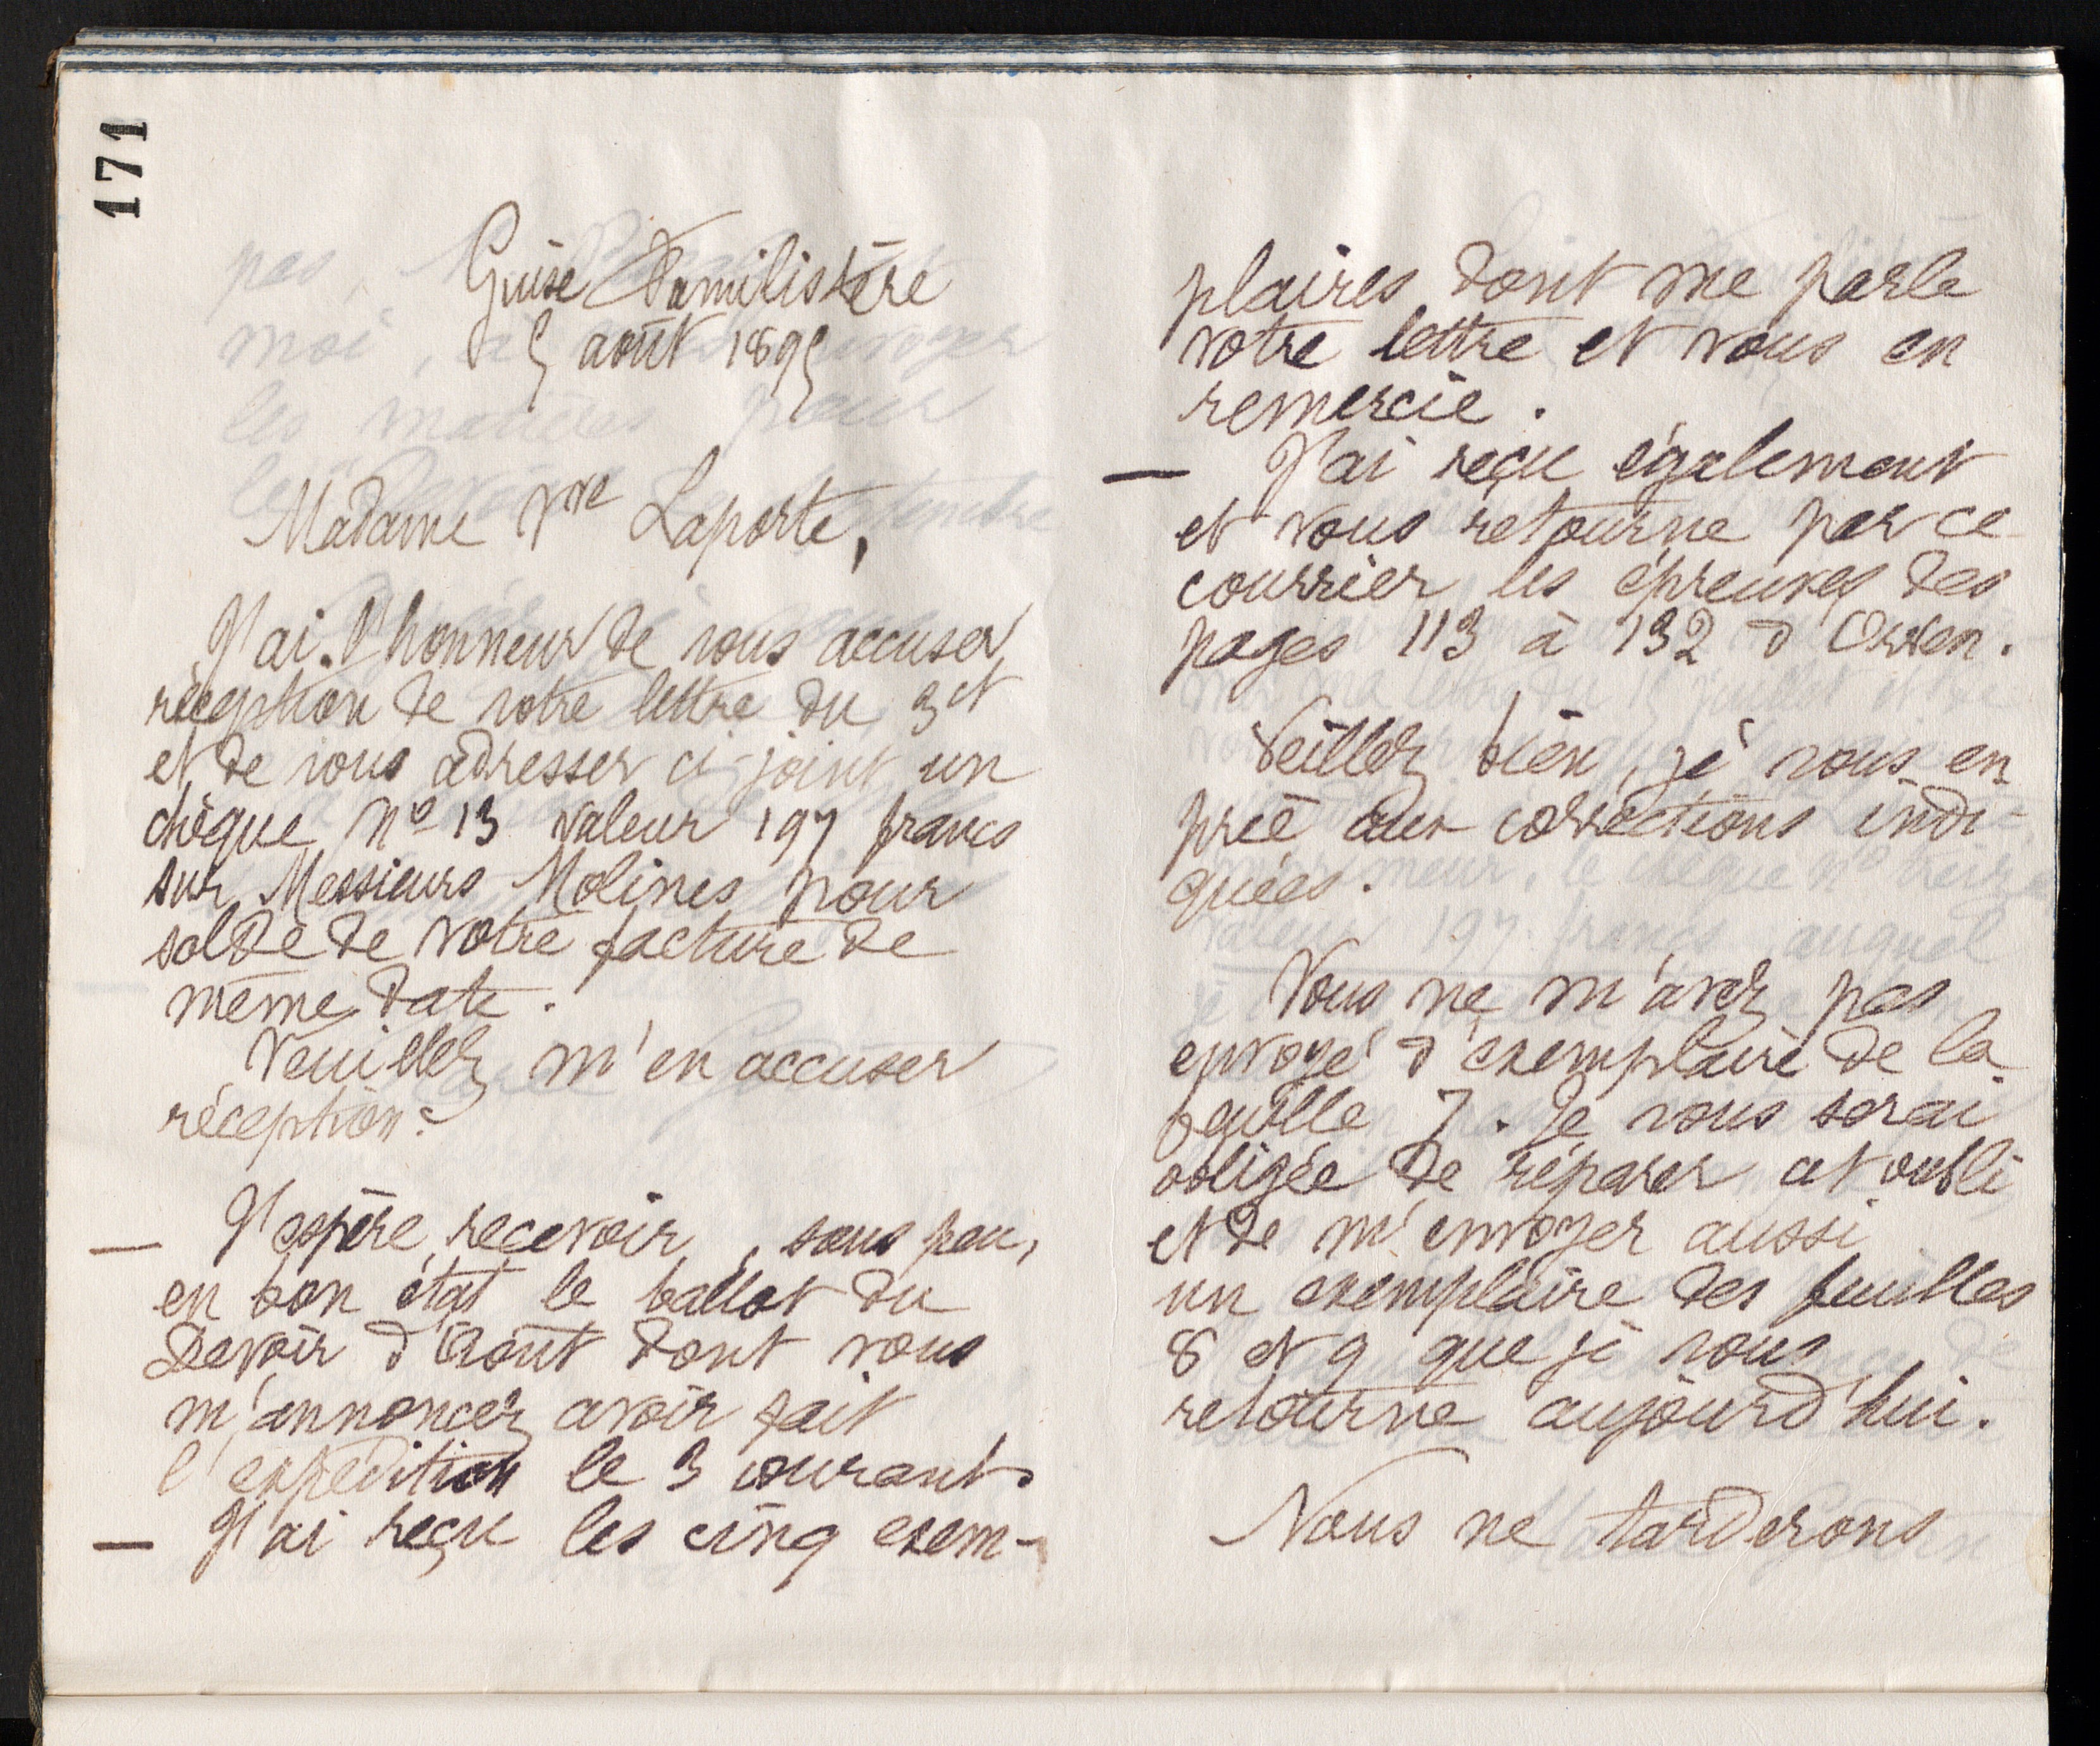 171
Guise Familistère
5 août 1895
Madame Vve Laporte,
J'ai l'honneur de vous accuser
réception de votre lettre du 3 ct
et de vous adresser ci-joint un
chèque No 13 valeur 197 francs
sur Messieurs Molines pour
solde de votre facture de
même date.
Veuillez m'en accuser
réception.
— J'espère recevoir, sous peu,
en bon état le ballot du
Devoir d'Août dont vous
m'annoncez avoir fait
l'expédition le 3 courant.
— J'ai reçu les cinq exem-
plaires dont me parle
votre lettre et vous en
remercie.
— J'ai reçu également
et vous retourne par ce
courrier les épreuves des
pages 113 à 132 d'Owen.
Veillez bien, je vous en
prie aux corrections indi-
quées.
Vous ne m'avez pas
envoyé d'exemplaire de la
feuille 7. Je vous serai
obligée de réparer cet oubli
et de m'envoyer aussi
un exemplaire des feuilles
8 et 9 que je vous
retourne aujourd'hui.
Nous ne tarderons